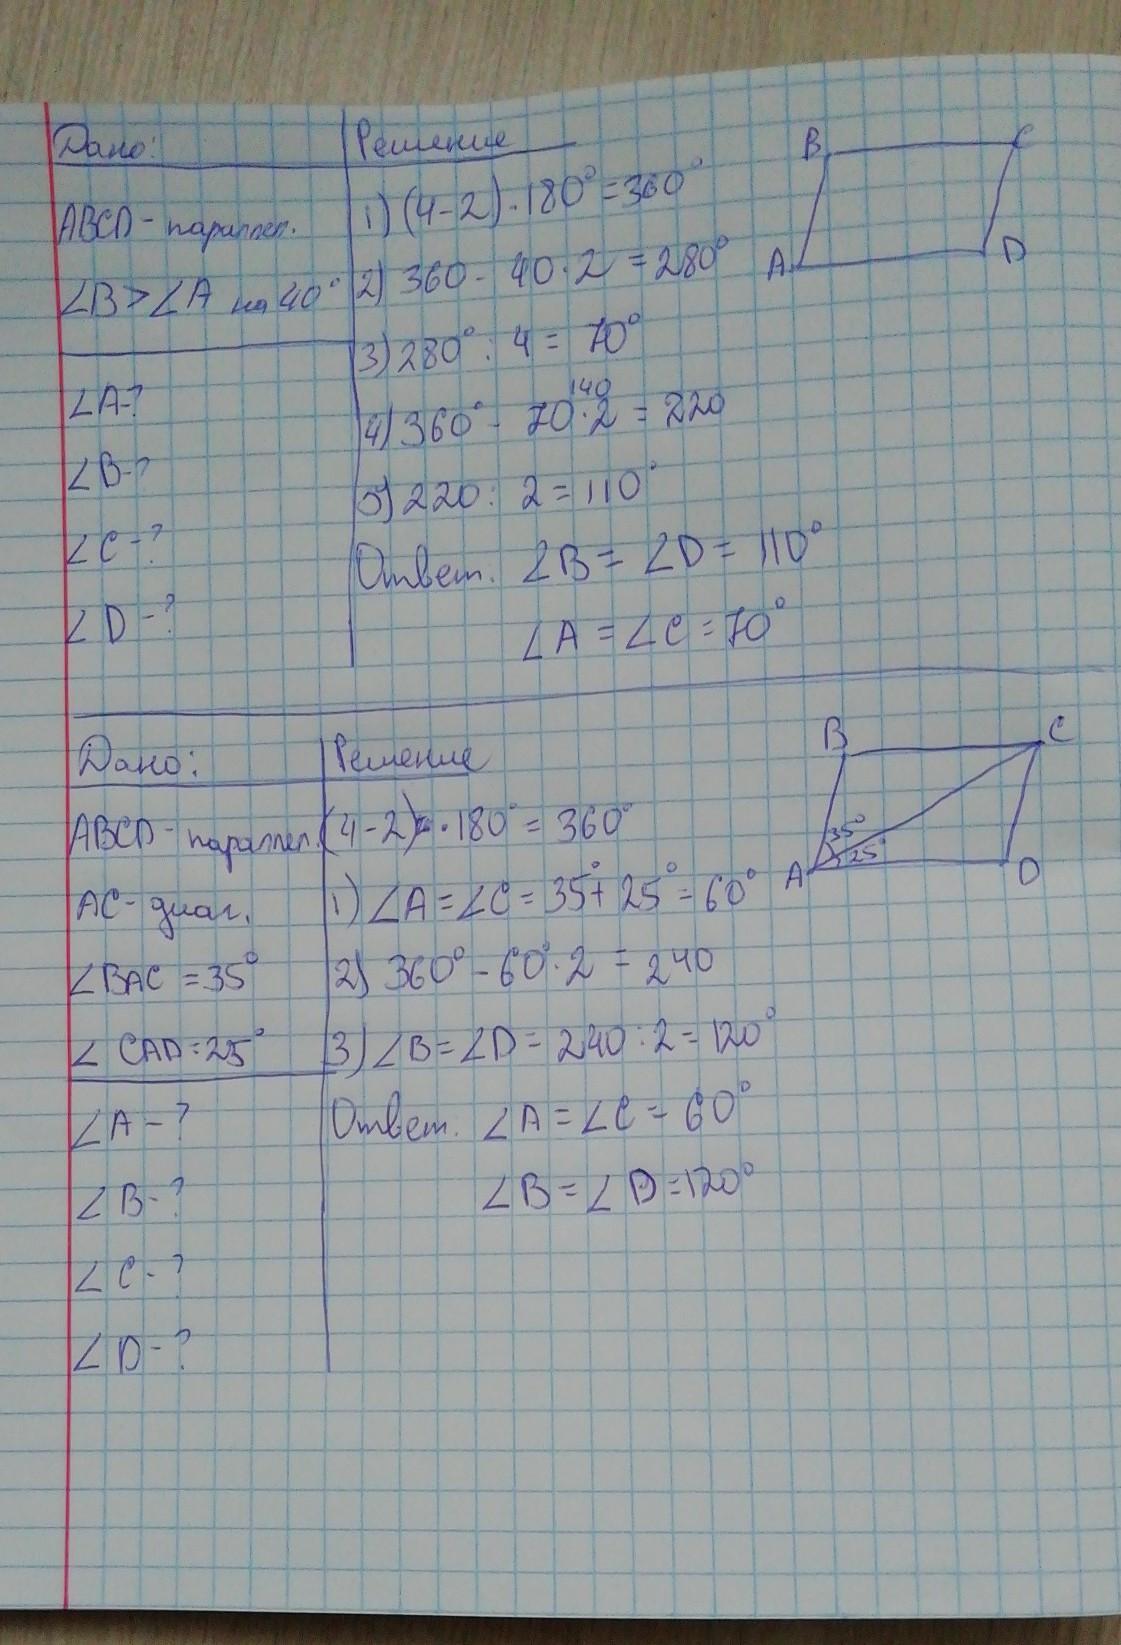 Дано:
Решение
ABCD - параллел.
∠B > ∠A на 40°
∠A-?
∠B-?
∠C-?
∠D-?
1) (4-2)·180°=360°
2) 360 - 40·2 = 280°
3) 280° : 4 = 70°
140
4) 360° - 70·2 = 220
5) 220 : 2 = 110°
Ответ. ∠B = ∠D = 110°
∠A = ∠C = 70°
B
C
A
D
Дано:
Решение
ABCD - параллел.
AC - диаг.
∠BAC = 35°
∠CAD = 25°
∠A-?
∠B-?
∠C-?
∠D-?
(4-2)·180° = 360°
1) ∠A = ∠C = 35°+25° = 60°
2) 360° - 60°·2 = 240
3) ∠B = ∠D = 240 : 2 = 120°
Ответ. ∠A = ∠C = 60°
∠B = ∠D = 120°
B
C
35°
25°
A
D